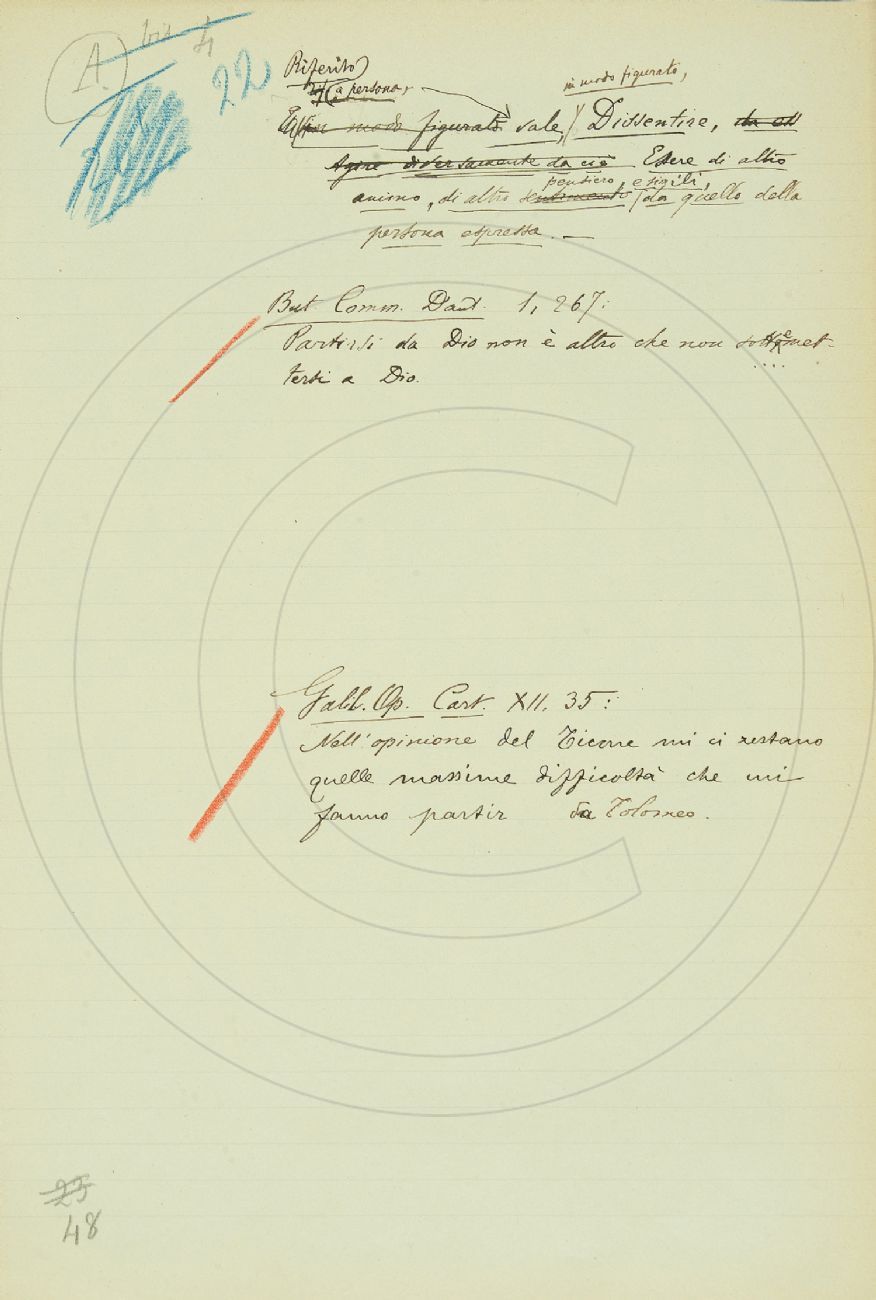 A. bis 4
22
Riferito
a persona,
in modo figurato,
in modo figurato vale, Dissentire, da
Agire diversamente da ciò Essere di altro
pensiero, e simili,
animo, di altro sentimento da quello della
persona espressa. —
But. Comm. Dant. 1, 267:
Partirsi da Dio non è altro che non sottomet-
tersi a Dio.
Galil. Op. Cart. XII. 35:
Nell'opinione del Ticone mi ci restano
quelle massime difficoltà che mi
fanno partir da Tolomeo.
25
48